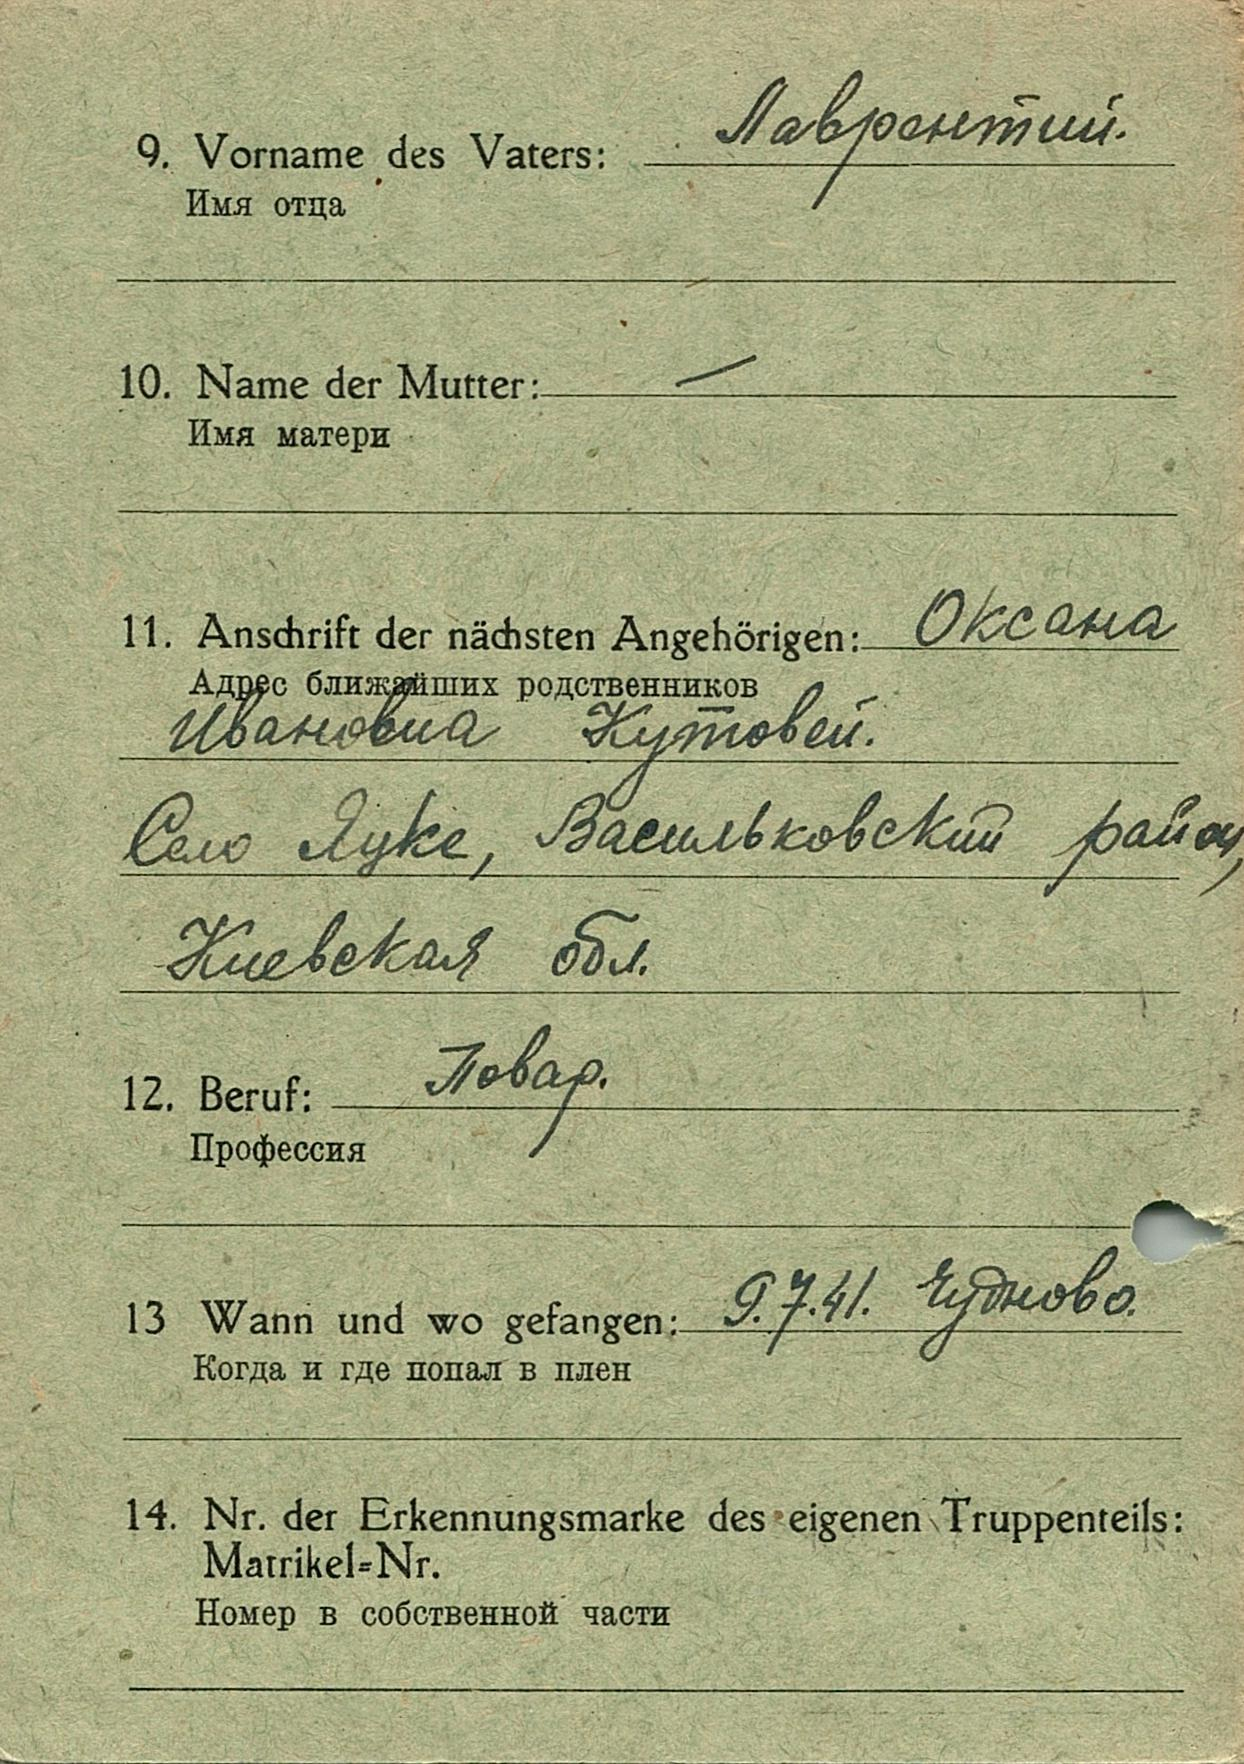 9. Vorname des Vaters: Лаврентий.
Имя отца
10. Name der Mutter: —
Имя матери
11. Anschrift der nächsten Angehörigen: Оксана
Адрес ближайших родственников
Ивановна Кутовей.
Село Яцке, Васильковский район,
Киевская обл.
12. Beruf: Повар.
Профессия
13 Wann und wo gefangen: 9.7.41. Чудново.
Когда и где попал в плен
14. Nr. der Erkennungsmarke des eigenen Truppenteils:
Matrikel=Nr.
Номер в собственной части